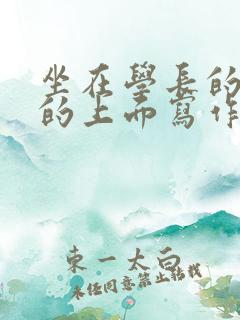 坐在學長的
的上面寫作
東一太白
未任同意禁止轉載